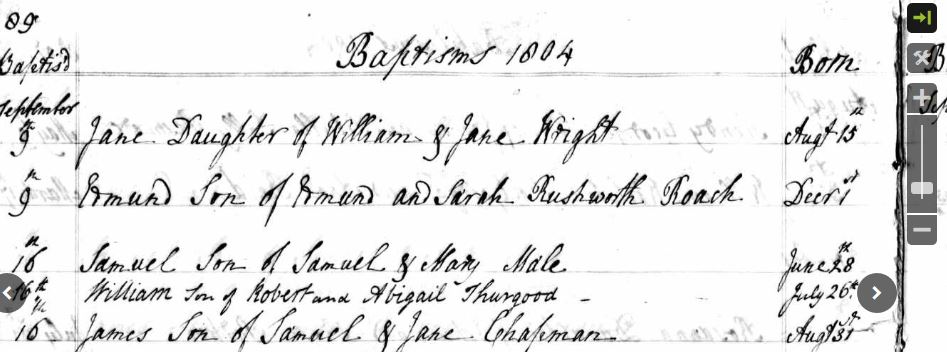 89
Baptis'd Baptisms 1804 Born
September
9th Jane Daughter of William & Jane Wright Augt 15th
9th Edmund Son of Edmund and Sarah Rushworth Roach Decr 1st
16th Samuel Son of Samuel & Mary Male June 28th
16th William Son of Robert and Abigail Thurgood - July 26th
16th James Son of Samuel & Jane Chapman Augt 31st